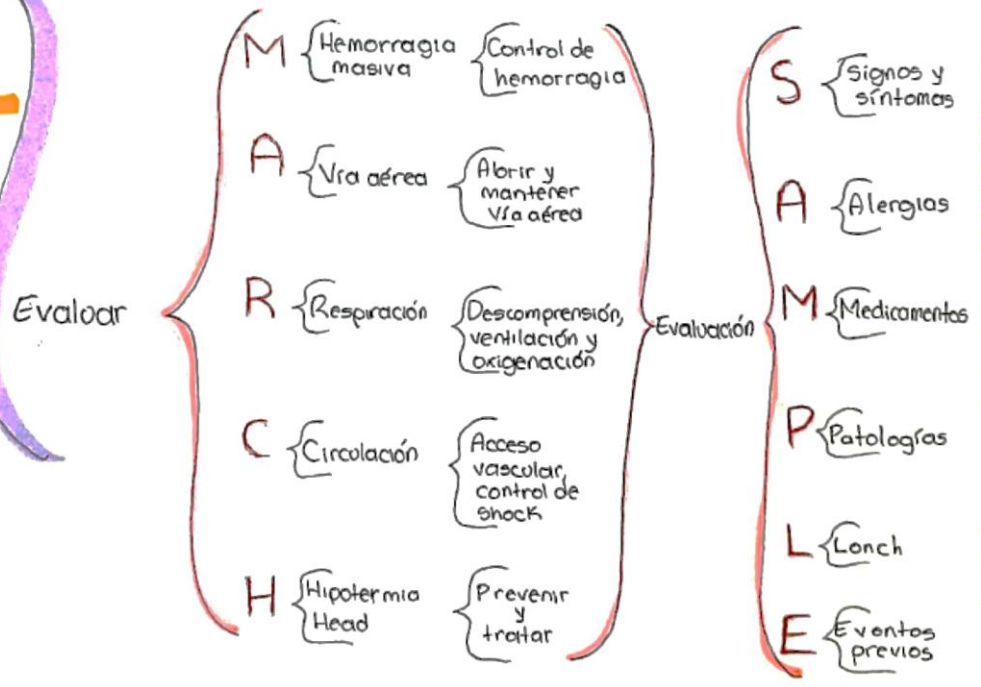 Evaluar
M
Hemorragia
masiva
Control de
hemorragia
A
Vía aérea
Abrir y
mantener
Vía aérea
R
Respiración
Descomprensión,
ventilación y
oxigenación
C
Circulación
Acceso
vascular,
control de
shock
H
Hipotermia
Head
Prevenir
y
tratar
Evaluación
S
Signos y
síntomas
A
Alergias
M
Medicamentos
P
Patologías
L
Lonch
E
Eventos
previos